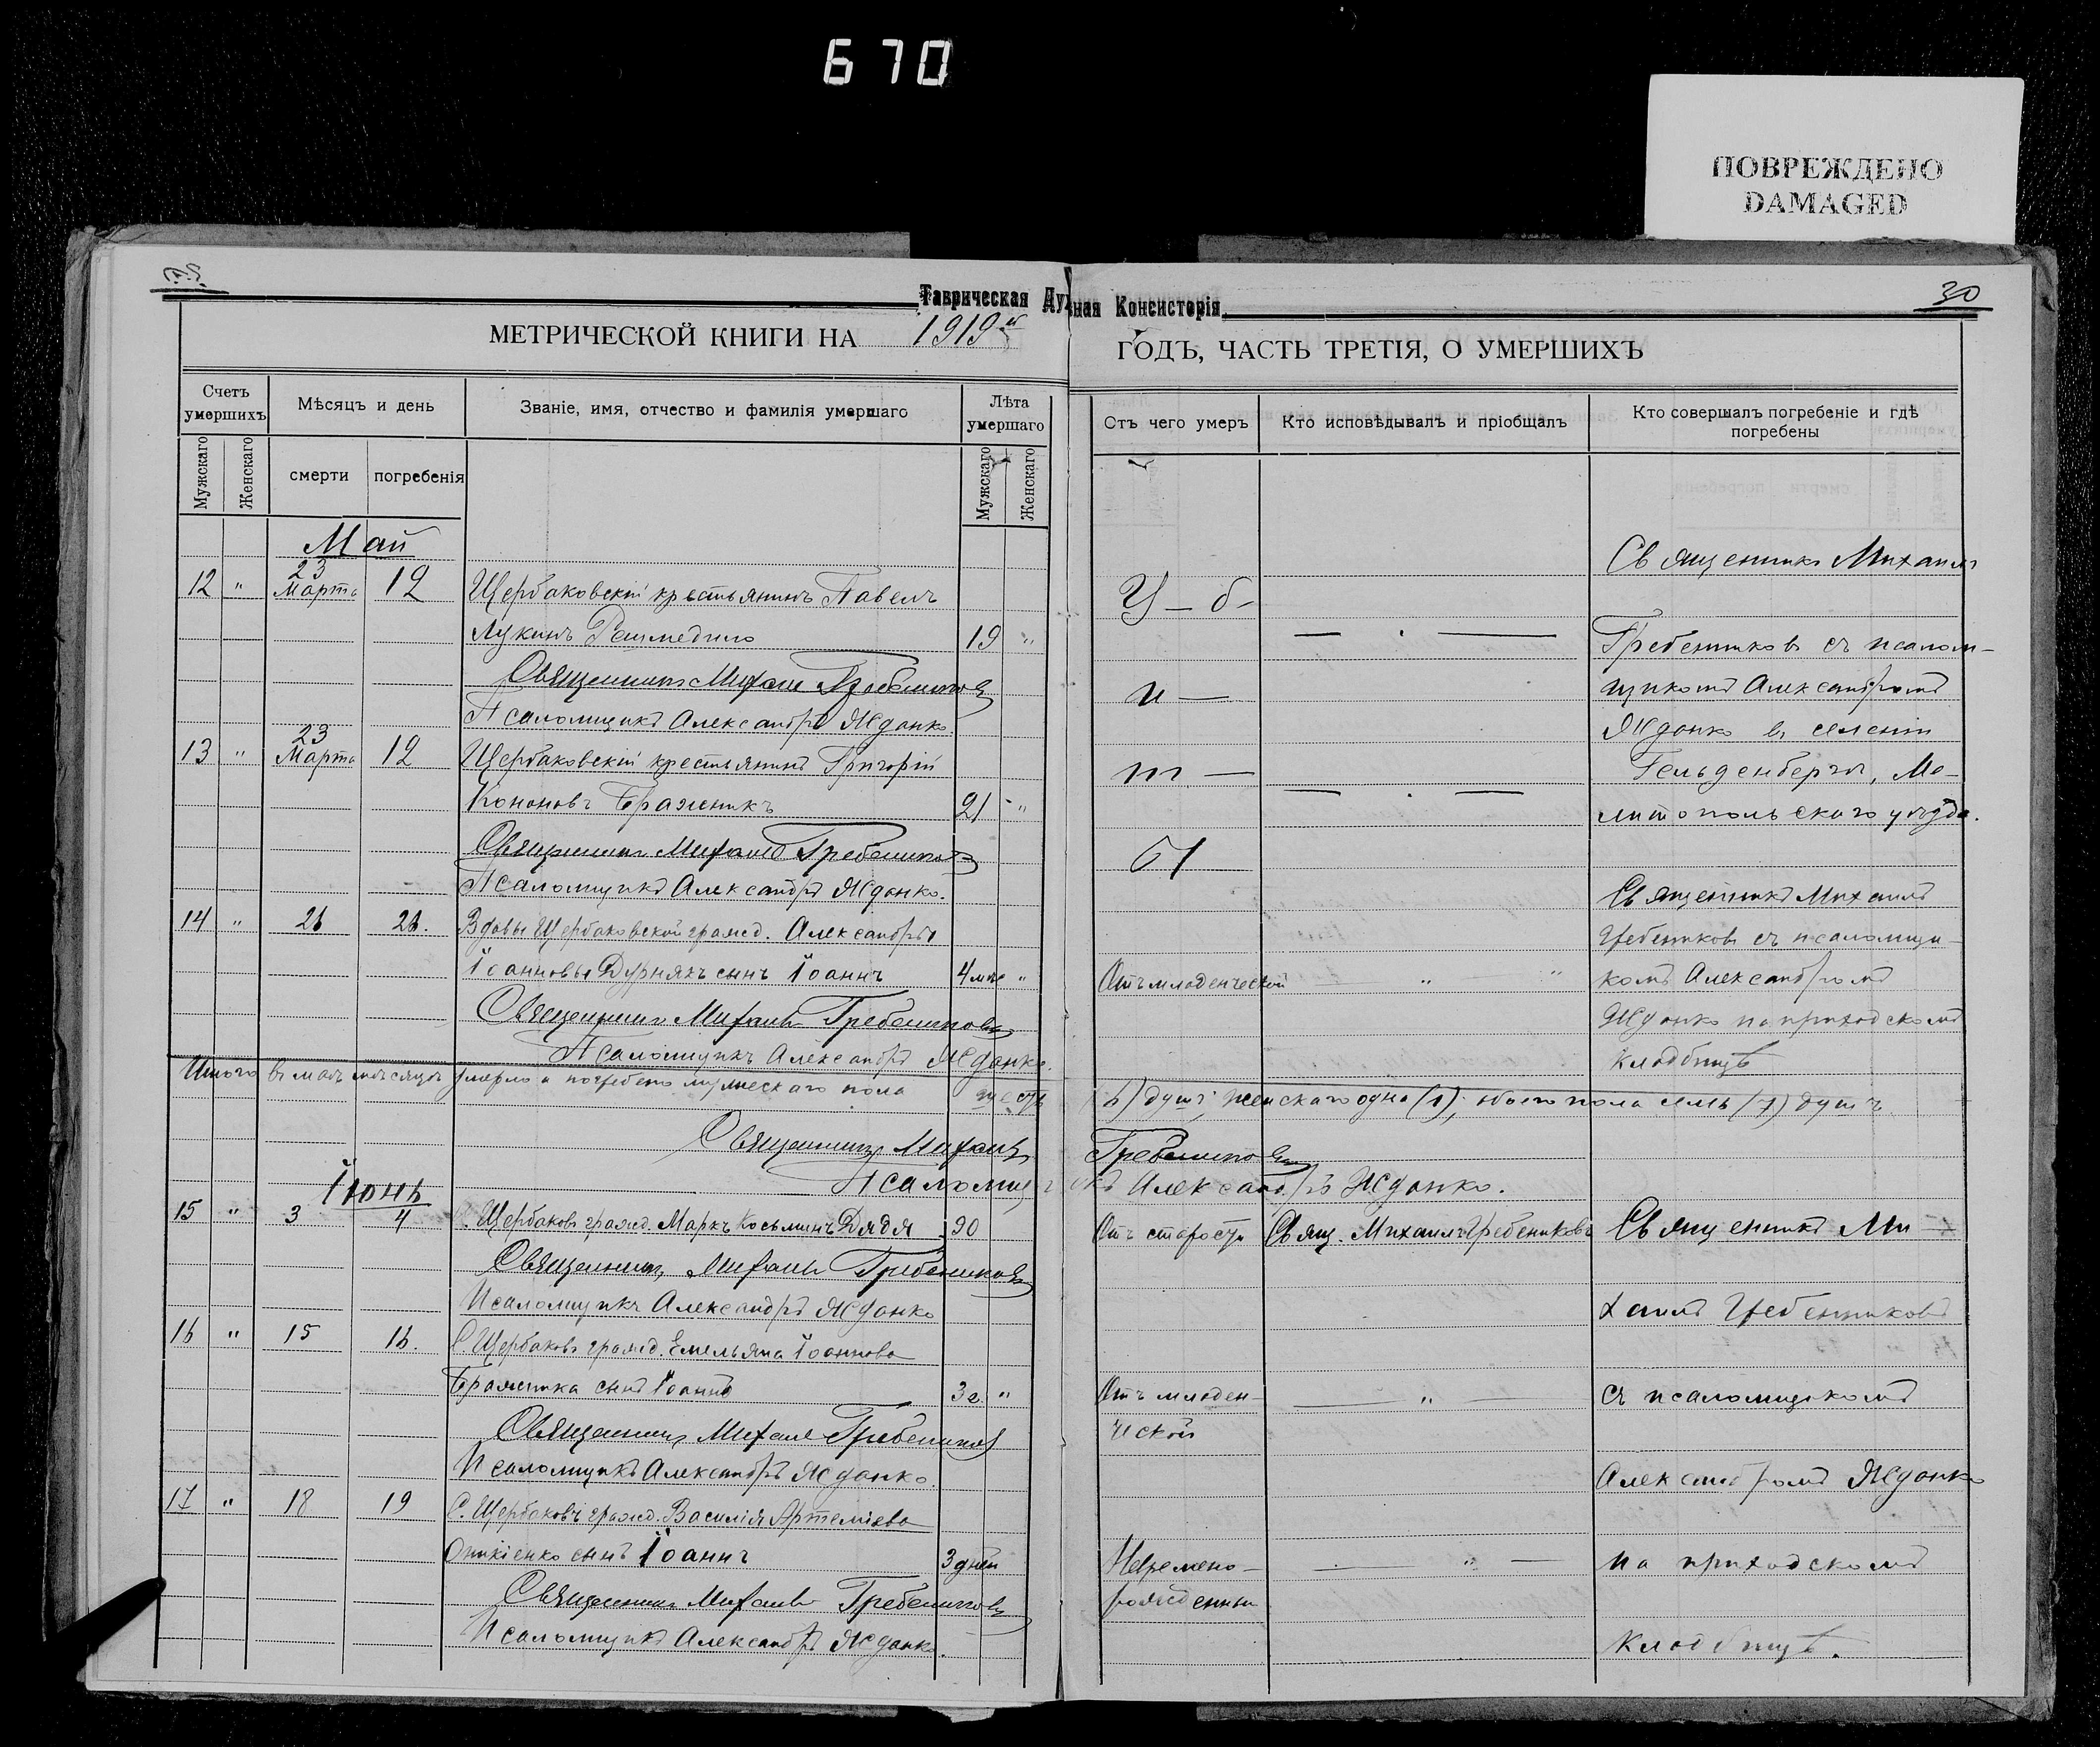 670
ПОВРЕЖДЕНО
DAMAGED
Таврическая Духовная Консисторія
30
МЕТРИЧЕСКОЙ КНИГИ НА 1919й
ГОДЪ, ЧАСТЬ ТРЕТІЯ, О УМЕРШИХЪ
Счетъ умершихъ
Мѣсяцъ и день
Званіе, имя, отчество и фамилія умершаго
Лѣта умершаго
Мужскаго
Женскаго
смерти
погребенія
Мужскаго
Женскаго
Май
12 " 23 Марта 12 Щербаковскій крестьянинъ Павелъ
Лукинъ 19 "
Священникъ Михаилъ Гребенниковъ
Псаломщикъ Александръ Жданко
13 " 23 Марта 12 Щербаковскій крестьянинъ Григорій
Кононовъ Бражникъ 21 "
Священникъ Михаилъ Гребенниковъ
Псаломщикъ Александръ Жданко.
14 " 26 26. Вдовы Щербаковской гражд. Александры
Іоанновы Дурнякъ сынъ Іоаннъ 4 мѣс "
Священникъ Михаилъ Гребенниковъ
Псаломщикъ Александръ Жданко.
Итого въ маѣ мѣсяцѣ умерло и погребено мужескаго пола шесть
Священникъ Михаилъ
Псаломщи
Іюнь
15 " 3 4 С. Щербаковъ гражд. Маркъ Косьминъ Дядя 90
Священникъ Михаилъ Гребенниковъ
Псаломщикъ Александръ Жданко
16 " 15 16. С. Щербаковъ гражд. Емельяна Іоаннова
Бражника сынъ Іоаннъ 3 г. "
Священникъ Михаилъ Гребенниковъ
Псаломщикъ Александръ Жданко.
17 " 18 19 С. Щербаковъ гражд. Василія Артеміева
Оникіенко сынъ Іоаннъ 3 дней
Священникъ Михаилъ Гребенниковъ
Псаломщикъ Александръ Жданко.
Отъ чего умеръ
Кто исповѣдывалъ и пріобщалъ
Кто совершалъ погребеніе и гдѣ погребены
Священникъ Михаилъ
У – б –
Гребенниковъ съ псалом-
и –
щикомъ Александромъ
Жданко въ селеніи
т –
Гельденбергъ, Ме-
литопольскаго уѣзда.
ы
Священникъ Михаилъ
Гребениковъ съ псаломщи-
Отъ младенческой " комъ Александромъ
Жданко на приходскомъ
кладбищѣ
(6) душъ; женскаго одна (1); обоего пола семь (7) душъ.
Гребенниковъ
къ Александръ Жданко.
Отъ старости Свящ. Михаилъ Гребениковъ Священникъ Ми-
хаилъ Гребенниковъ
Отъ младен- " съ псаломщикомъ
ческой
Александромъ Жданко
Невремено- " на приходскомъ
рожденный
кладбищѣ.